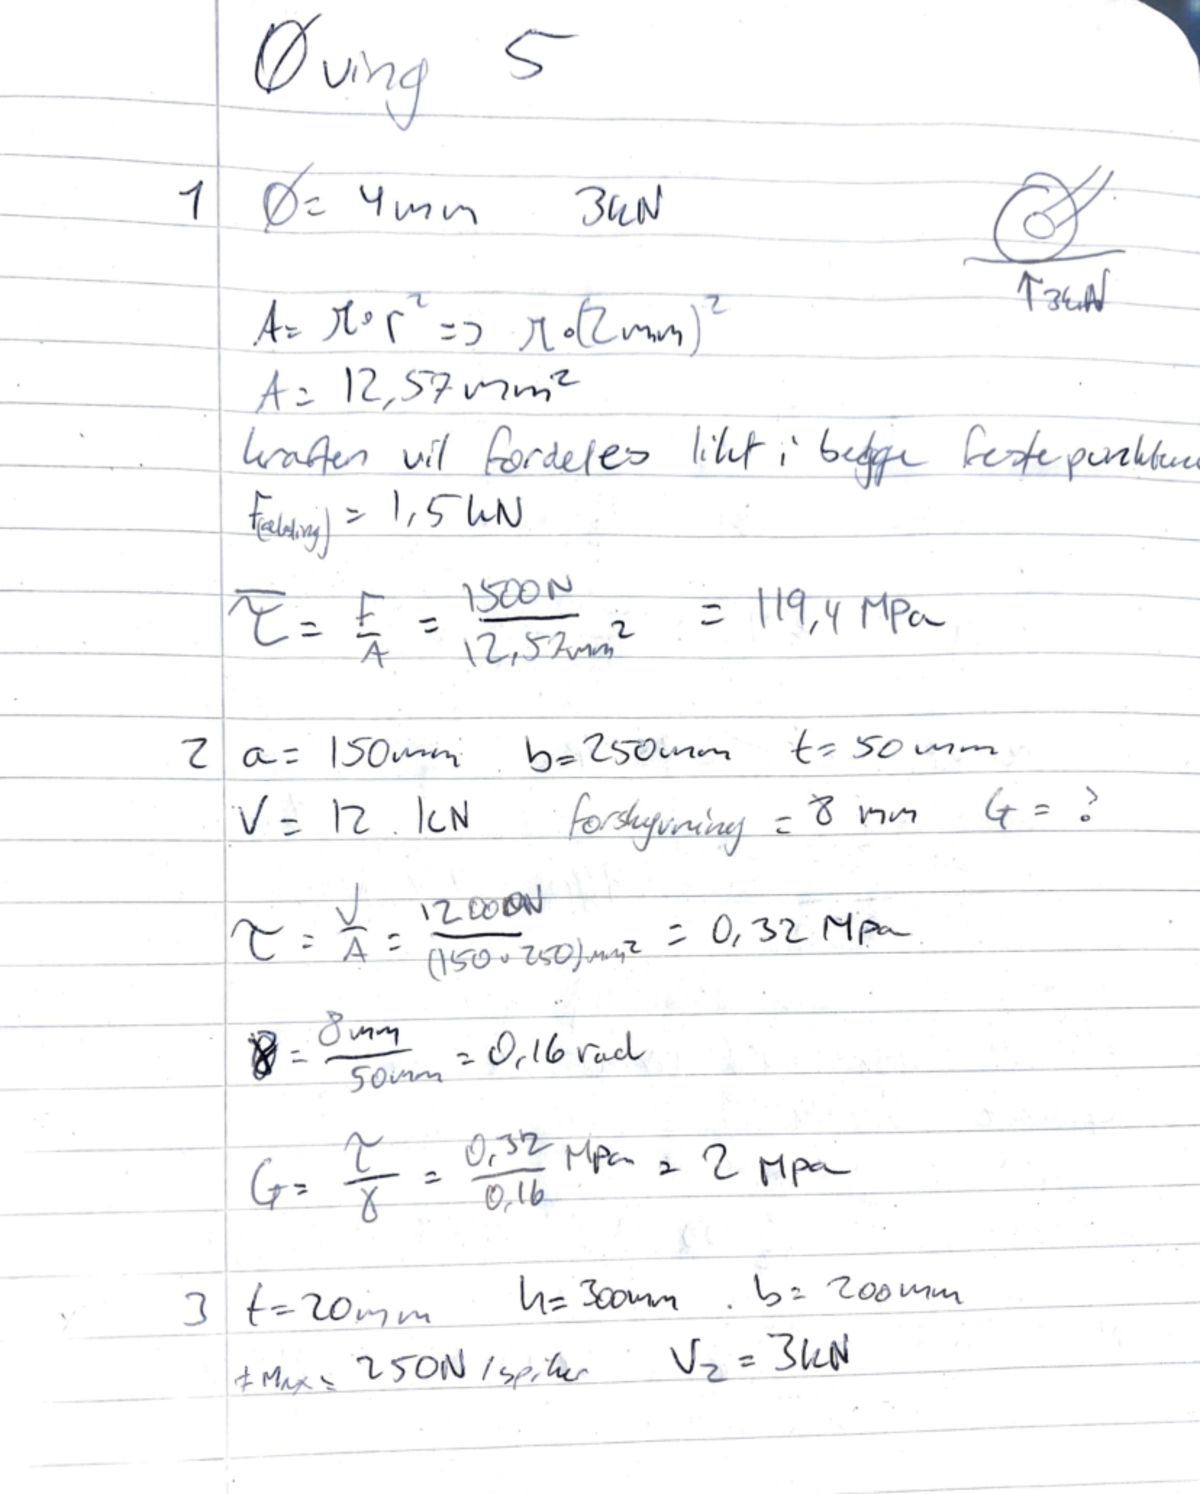 Øving 5
1 Ø= 4mm 3kN
↑3kN
A= π∘r² => π∘(2mm)²
A= 12,57mm²
kraften vil fordeles likt i begge festepunktene
F = 1,5 kN
τ = F/A = 1500N/12,57mm² = 119,4 MPa
2 a= 150mm b=250mm t= 50mm
V= 12 kN forskyvning = 8 mm G = ?
τ = V/A = 12000N/(150∘250)mm² = 0,32 MPa
γ = 8mm/50mm = 0,16 rad
G= τ/γ = 0,32/0,16 MPa = 2 MPa
3 t=20mm h= 300mm . b= 200mm
Max= 250N /spiker V₂ = 3kN